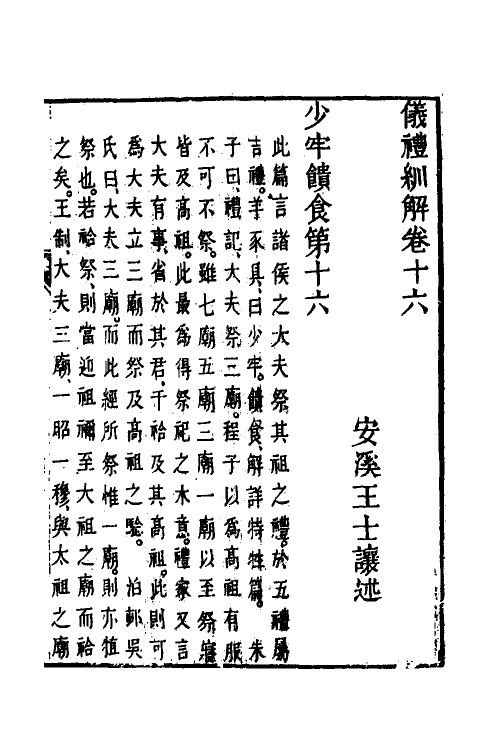 儀禮紃解卷十六
安溪王士讓述
少牢饋食第十六
此篇言諸侯之大夫祭其祖之禮。於五禮屬
吉禮。羊豕具、曰少牢。饋食、解詳特牲篇。 朱
子曰、禮記、大夫祭三廟。程子以為高祖有服
不可不祭。雖七廟五廟三廟一廟以至祭寢
皆及高祖。此最為得祭祀之本意。禮家又言
大夫有事、省於其君、干祫及其高祖。此則可
為大夫立三廟而祭及高祖之驗。 泊邨吳
氏曰、大夫三廟。而此經所祭惟一廟。則亦犆
祭也。若祫祭、則當迎祖禰至大祖之廟而祫
之矣。王制、大夫三廟、一昭一穆、與太祖之廟